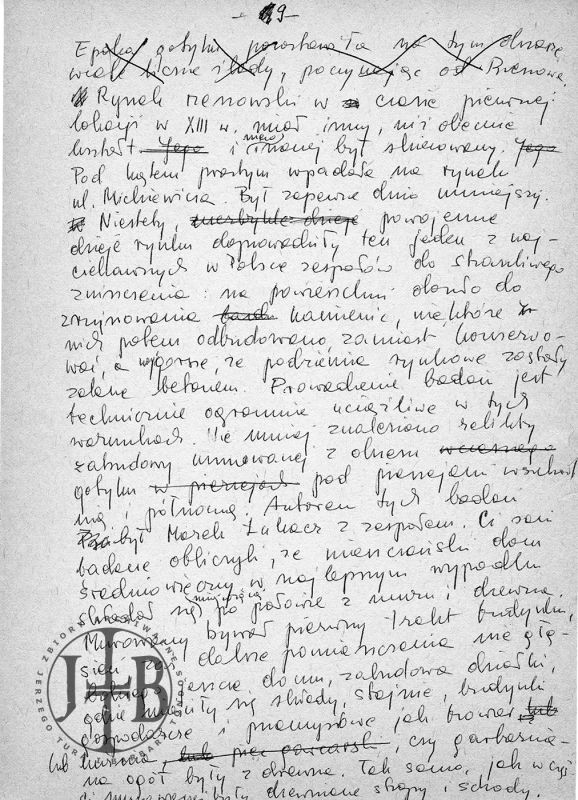 - 19 -
Epoka gotyku, pozostawiła na tym obszarze
wiele liczne ślady, poczynając od Rzeszowa.
Rynek rzeszowski w czasie pierwszej
lokacji w XIII w. miał inny, niż obecnie
kształt. Jego i inaczej był skierowany. Jego
Pod kątem prostym wpadała na rynek
ul. Mickiewicza. Był zapewne dnia mniejszy.
Niestety, niezbyt dzieje powojenne
dzieje rynku doprowadziły ten jeden z naj-
ciekawszych w Polsce zespołów do straszliwego
zniszczenia: na powierzchni około do
zrujnowania kamienic, niektóre z
nich potem odbudowano, zamiast konserwo-
wać, a najgorsze, że podziemia rynkowe zostały
zalane betonem. Prowadzenie badań jest
technicznie ogromnie uciążliwe w tych
warunkach. Nie mniej znaleziono relikty
zabudowy murowanej z okresu wczesnego
gotyku w pierzejach pod pierzejami wschod
nią i północną. Autorem tych badań
był Marek Łukacz z zespołem. Ci sami
badacze obliczyli, że mieszczański dom
średniowieczny w najlepszym wypadku
składał się mniej więcej po połowie z muru i drewna.
Murowany bywał pierwszy trakt budynku,
zaś dalsze pomieszczenia na głę-
domu, zabudowa działki,
gdzie mieściły się składy, stajnie, budynki
gospodarcze i przemysłowe jak browar, lub
lub kuźnia, lub piec garncarski, czy garbarnia-
na ogół były z drewna. Tak samo, jak w częś
ci murowanej były drewniane stropy i schody.
JTB